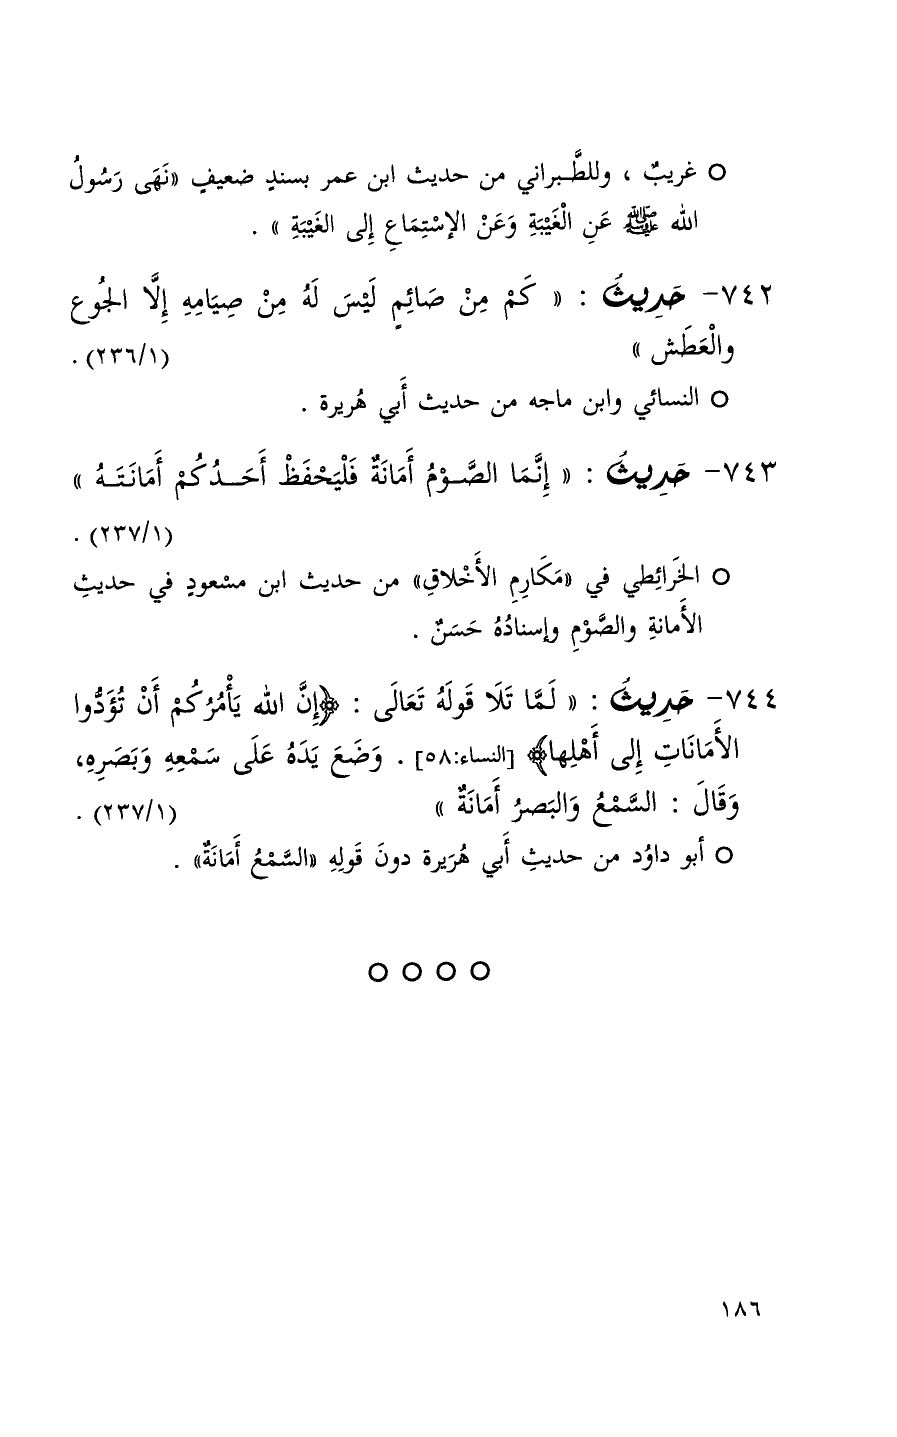 ○ غريبٌ ، وللطَّـبراني من حديث ابن عمر بسندٍ ضعيفٍ «نَهَى رَسُولُ
الله ﷺ عَنِ الْغَيْبَةِ وَعَنْ الإسْتِمَاعِ إِلى الغَيْبَةِ » .
٧٤٢- حَدِيثُ : « كَمْ مِنْ صَائِمٍ لَيْسَ لَهُ مِنْ صِيَامِهِ إِلَّا الجُوع
والْعَطَش » (٢٣٦/١) .
○ النسائي وابن ماجه من حديث أَبي هُريرة .
٧٤٣- حَدِيثُ : « إِنَّمَا الصَّـوْمُ أَمَانَةٌ فَلْيَحْفَظْ أَحَـدُكُمْ أَمَانَتَـهُ »
(٢٣٧/١) .
○ الخَرائِطي في «مَكَارِمِ الأَخْلاقِ» من حديث ابن مسْعودٍ في حديثِ
الأَمانةِ والصَّوْمِ وإسنادُهُ حَسَنٌ .
٧٤٤- حَدِيثُ : « لَمَّا تَلَا قَولَهُ تَعَالَى : ﴿إِنَّ الله يَأْمُرُكُمْ أَنْ تُؤَدُّوا
الأَمَانَاتِ إِلى أَهْلِها﴾ [النساء:٥٨] . وَضَعَ يَدَهُ عَلَى سَمْعِهِ وَبَصَرِهِ،
وَقَالَ : السَّمْعُ وَالبَصرُ أَمَانَةٌ » (٢٣٧/١) .
○ أبو داوُد من حديثِ أَبي هُرَيرة دونَ قَولِهِ «السَّمْعُ أَمَانَةٌ» .
○ ○ ○ ○
١٨٦